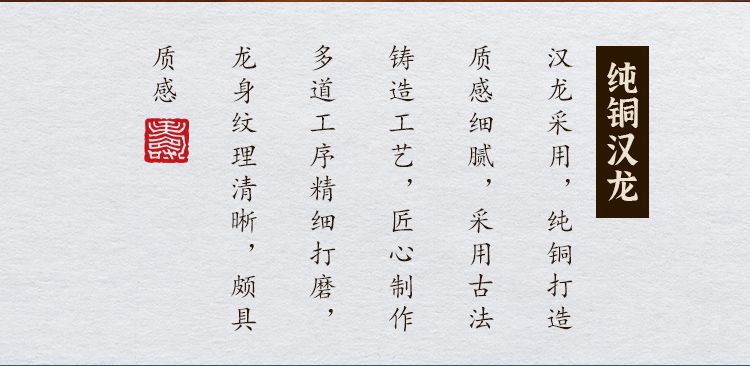 纯铜汉龙
汉龙采用，纯铜打造
质感细腻，采用古法
铸造工艺，匠心制作
多道工序精细打磨，
龙身纹理清晰，颇具
质感